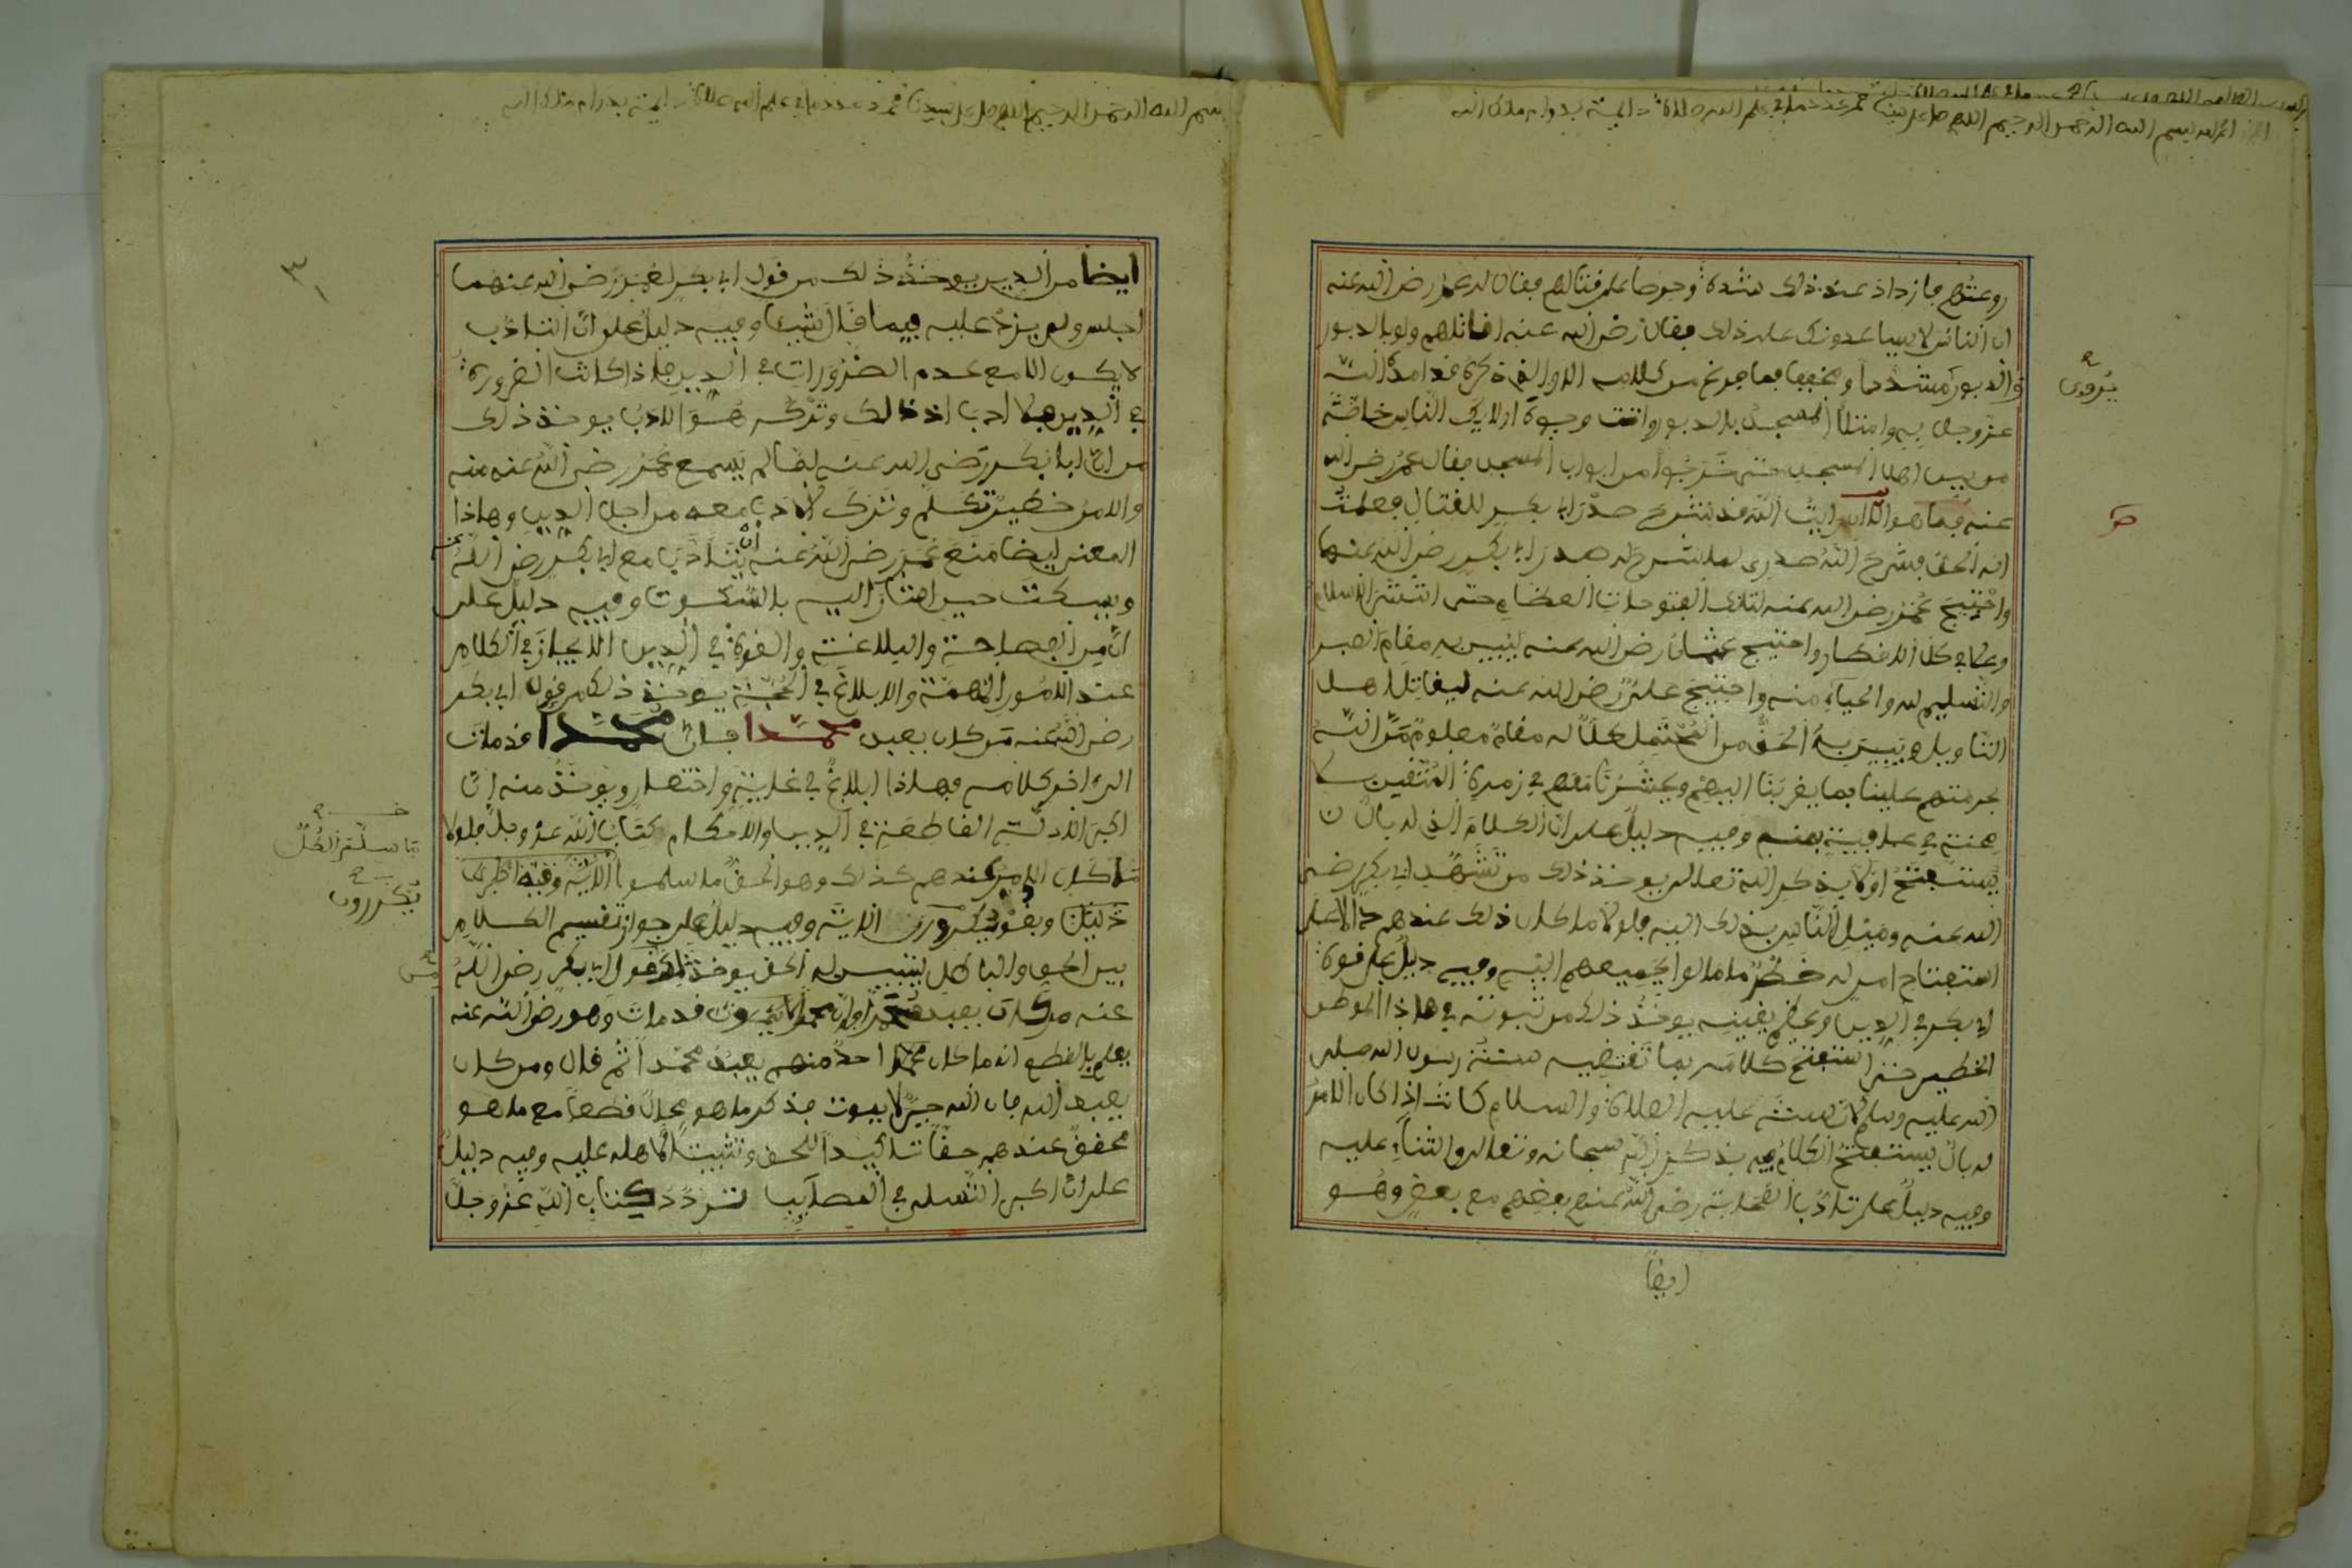 بسم الله الرحمن الرحيم اللهم صل على سيدنا محمد عدد ما في علم الله صلاة دائمة بدوام ملك الله
روعتهم فازداد عند ذلك شدة وحرصا على قتالهم فقال له عمر رضي الله عنه
ان الناس لا يساعدونك على ذلك فقال رضي الله عنه اقاتلهم ولو بالدبور
والدبور مشددا ومخففا فما فرغ من كلامه الا والقدرة قد امده الله
عز وجل به وامتلأ المسجد بالدبور واتت وجوه اولائك الناس خاصة
من بين اهل المسجد حتى خرجوا من ابواب المسجد فقال عمر رضي الله
عنه فما هو الا ان رايت الله قد شرح صدر ابي بكر للقتال فعلمت
انه الحق فشرح الله صدري لما شرح له صدر ابي بكر رضي الله عنهما
واحتيج عمر رضي الله عنه لتلك الفتوحات العظام حتى انتشر الاسلام
وعلا في كل الاقطار واحتيج عثمان رضي الله عنه ليبين به مقام الصبر
والتسليم لله والحياء منه واحتيج علي رضي الله عنه ليقاتل اهل
التاويل ويبين به الحق من المحتمل كل له مقام معلوم من الله
بحرمتهم علينا بما يقربنا اليهم ويحشرنا معهم في زمرة المتقين
منه في عافية بمنه وفيه دليل على ان الكلام الذي له بال
يستفتح اولا بذكر الله تعالى يوخذ ذلك من تشهد ابي بكر رضي
الله عنه وميل الناس بذلك اليه فلولا ما كان ذلك عندهم دالا على
استفتاح امر له خطر ما مالوا بجميعهم اليه وفيه دليل على قوة
ابي بكر في الدين وعظم يقينه يوخذ ذلك من ثبوته في هاذا الموطن
الخطير حتى استفتح كلامه بما تقتضيه سنة رسول الله صلى
الله عليه وسلم لان سنته عليه الصلاة والسلام كانت اذا كان الامر
له بال يستفتح الكلام فيه بذكر الله سبحانه وتعالى والثناء عليه
وفيه دليل على تادب الصحابة رضي الله عنهم بعضهم مع بعض وهو
ايضا
يروى
بسم الله الرحمن الرحيم اللهم صل على سيدنا محمد عدد ما في علم الله صلاة دائمة بدوام ملك الله
ايضا من الدين يوخذ ذلك من قول ابي بكر لعمر رضي الله عنهما
اجلس ولم يزد عليه فيما قال شيئا وفيه دليل على ان التادب
لا يكون الا مع عدم الضرورات في الدين فاذا كانت الضرورة
في الدين فلا ادب اذ ذالك وتركه هو الادب يوخذ ذلك
من ان ابا بكر رضي الله عنه لما لم يسمع عمر رضي الله عنه منه
والامر خطير تكلم وترك الادب معه من اجل الدين وهاذا
المعنى ايضا منع عمر رضي الله عنه ان يتادب مع ابي بكر رضي الله عنه
ويسكت حين اشار اليه بالسكوت وفيه دليل على
ان من الفصاحة والبلاغة والقوة في الدين الايجاز في الكلام
عند الامور المهمة والابلاغ في الحجة يوخذ ذلك من قول ابي بكر
رضي الله عنه من كان يعبد محمدا فان محمدا قد مات
الى اخر كلامه فهاذا ابلاغ في غاية واختصار ويوخذ منه ان
اكبر الادلة القاطعة في الدين والاحكام كتاب الله عز وجل فلولا
ما كان الامر عندهم كذلك وهو الحق ما سلموا
وبقوا يكررون الاية وفيه دليل على جواز تقسيم الكلام
بين الحق والباطل ليتبين له الحق يوخذ ذلك من قول ابي بكر رضي الله
عنه من كان يعبد محمدا فان محمدا قد مات وهو رضي الله عنه
يعلم بالقطع انه ما كان احد منهم يعبد محمدا ثم قال ومن كان
يعبد الله فان الله حي لا يموت فذكر ما هو محال قطعا مع ما هو
محقق عندهم حقا تاكيدا للحق وتثبيتا لاهله عليه وفيه دليل
على ان اكبر التسلي في المصايب تردد كتاب الله عز وجل
يكررون